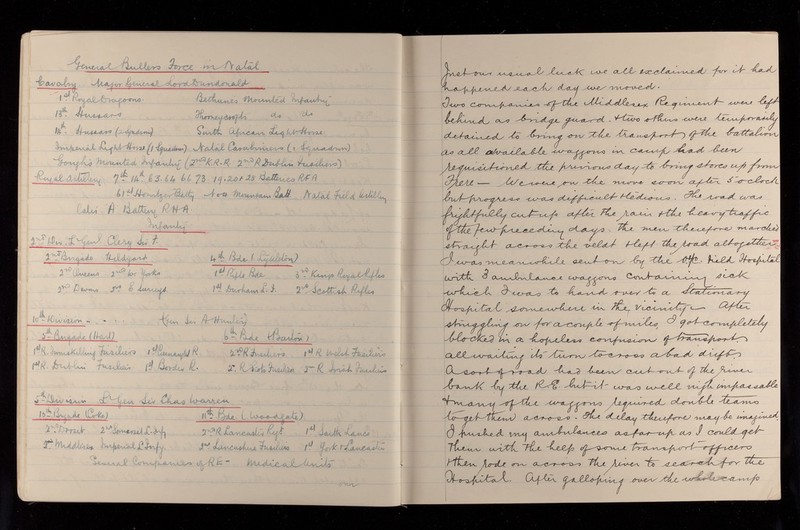 General Bullers Force in Natal
Cavalry Major General Lord Dundonald
1st Royal Dragoons Bethunes Mounted Infantry
13th Hussars Thorneycrofts do do
18th Hussars (1 Squadron) South African Light Horse
Imperial Light Horse (1 Squadron) Natal Carabiniers (1 Squadron)
Gough's Mounted Infantry (2nd K.R.R. 2nd R Dublin Fusiliers)
Royal Artillery 7th 14th 63. 64 66. 73. 19. 20 & 28 Batteries RFA
61st Howitzer Batty No 4 Mountain Batt. Natal Field Artillery
Also A Battery R H A
Infantry
2nd Divn Lt Genl Clery Sir F.
2nd Brigade Hildyard 4th Bde (Lyttelton)
2nd Queens 2nd W Yorks 1st Rifle Bde 3rd Kings Royal Rifles
2nd Devons 2nd E Surreys 1st Durham L. I. 2nd Scottish Rifles
10th Division - - Gen Sir A Hunter
5th Brigade (Hart) 6th Bde (Barton)
1st R. Inniskilling Fusiliers 1st Connaught R. 2nd R Fusiliers 1st R Welsh Fusiliers
1st R. Dublin Fusiliers 1st Border R. 2nd R Scots Fusiliers 2nd R Irish Fusiliers
5th Division Lt Gen Sir Chas Warren
10th Brigade (Coke) 11th Bde (Woodgate)
2nd Dorset 2nd Somerset L. Infy 2nd R Lancaster Regt 1st South Lancs
2nd Middlesex Imperial L Infy 2nd Lancashire Fusiliers 1st York & Lancaster
Several Companies of R E - Medical Units
Just our usual luck we all exclaimed for it had
happened each day we moved.
Two companies of the Middlesex Regiment were left
behind as bridge guard, & two others were temporarily
detained to bring on the transport of the battalion
as all available waggons in camp had been
requisitioned the previous day to bring stores up from
Frere — We were on the move soon after 5 o'clock
but progress was difficult & tedious. The road was
frightfully cut up after the rain & the heavy traffic
of the few preceding days. The men therefore marched
straight across the veldt & left the road altogether.
I was meanwhile sent on by the o/c. Field Hospital
with 3 ambulance waggons containing sick
which I was to hand over to a Stationary
Hospital somewhere in the vicinity — After
struggling on for a couple of miles, I got completely
blocked in a hopeless confusion of transport
all waiting its turn to cross a bad drift.
A sort of road had been cut out of the river
bank by the R.E. but it was well nigh impassable
& many of the waggons required double teams
to get them across. The delay therefore may be imagined
I pushed my ambulances as far up as I could get
them with the help of some transport officers
& then rode on across the river to search for the
Hospital. After galloping over the whole camp